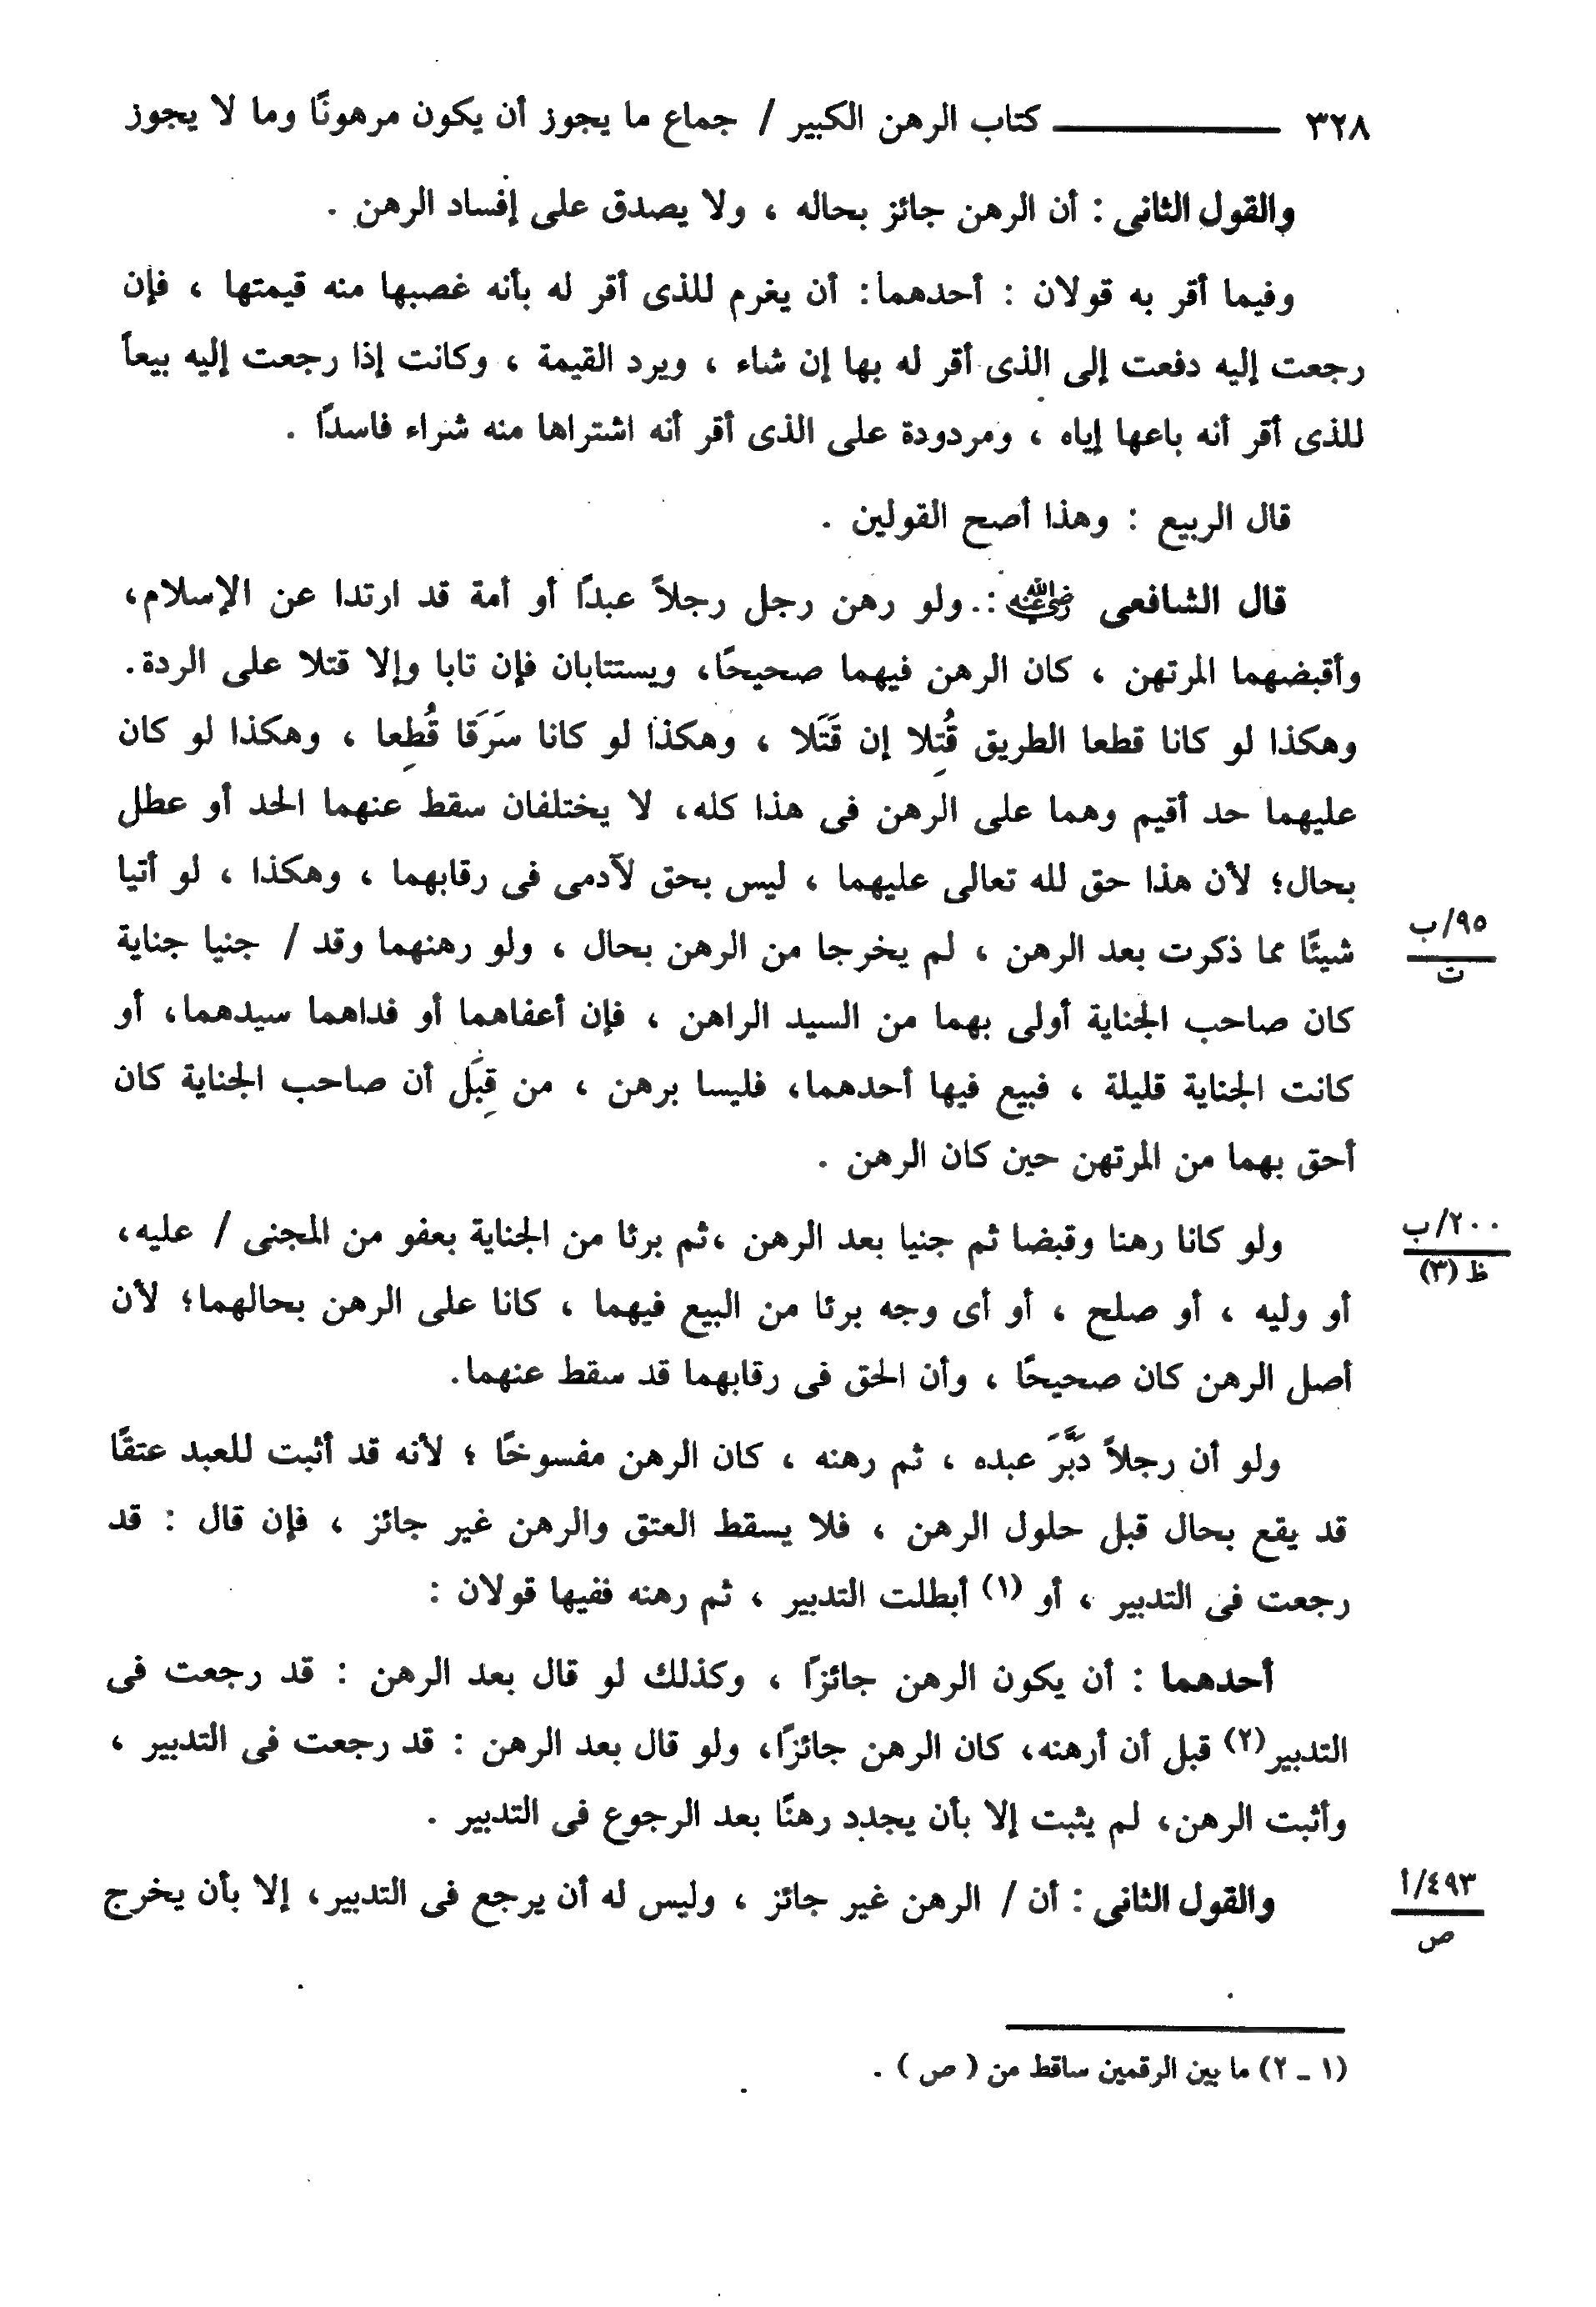 ٣٢٨ ـــــــــــ كتاب الرهن الكبير / جماع ما يجوز أن يكون مرهونًا وما لا يجوز
والقول الثانى : أن الرهن جائز بحاله ، ولا يصدق على إفساد الرهن .
وفيما أقر به قولان : أحدهما : أن يغرم للذى أقر له بأنه غصبها منه قيمتها ، فإن
رجعت إليه دفعت إلى الذى أقر له بها إن شاء ، ويرد القيمة ، وكانت إذا رجعت إليه بيعاً
للذى أقر أنه باعها إياه ، ومردودة على الذى أقر أنه اشتراها منه شراء فاسدًا .
قال الربيع : وهذا أصح القولين .
قال الشافعى رضي الله عنه : ولو رهن رجل رجلاً عبدًا أو أمة قد ارتدا عن الإسلام،
وأقبضهما المرتهن ، كان الرهن فيهما صحيحًا، ويستتابان فإن تابا وإلا قتلا على الردة.
وهكذا لو كانا قطعا الطريق قُتِلا إن قَتَلا ، وهكذا لو كانا سَرَقا قُطِعا ، وهكذا لو كان
عليهما حد أقيم وهما على الرهن فى هذا كله، لا يختلفان سقط عنهما الحد أو عطل
بحال؛ لأن هذا حق لله تعالى عليهما ، ليس بحق لآدمى فى رقابهما ، وهكذا ، لو أتيا
شيئًا مما ذكرت بعد الرهن ، لم يخرجا من الرهن بحال ، ولو رهنهما وقد / جنيا جناية
٩٥/ب
ت
كان صاحب الجناية أولى بهما من السيد الراهن ، فإن أعفاهما أو فداهما سيدهما، أو
كانت الجناية قليلة ، فبيع فيها أحدهما، فليسا برهن ، من قِبَل أن صاحب الجناية كان
أحق بهما من المرتهن حين كان الرهن .
ولو كانا رهنا وقبضا ثم جنيا بعد الرهن ،ثم برئا من الجناية بعفو من المجنى / عليه،
٢٠٠/ب
ظ (٣)
أو وليه ، أو صلح ، أو أى وجه برئا من البيع فيهما ، كانا على الرهن بحالهما؛ لأن
أصل الرهن كان صحيحًا ، وأن الحق فى رقابهما قد سقط عنهما.
ولو أن رجلاً دَبَّرَ عبده ، ثم رهنه ، كان الرهن مفسوخًا ؛ لأنه قد أثبت للعبد عتقًا
قد يقع بحال قبل حلول الرهن ، فلا يسقط العتق والرهن غير جائز ، فإن قال : قد
رجعت فى التدبير ، أو (١) أبطلت التدبير ، ثم رهنه ففيها قولان :
أحدهما : أن يكون الرهن جائزًا ، وكذلك لو قال بعد الرهن : قد رجعت فى
التدبير(٢) قبل أن أرهنه، كان الرهن جائزًا، ولو قال بعد الرهن : قد رجعت فى التدبير ،
وأثبت الرهن، لم يثبت إلا بأن يجدد رهنًا بعد الرجوع فى التدبير .
والقول الثانى : أن / الرهن غير جائز ، وليس له أن يرجع فى التدبير، إلا بأن يخرج
٤٩٣/أ
ص
(١ ـ ٢) ما بين الرقمين ساقط من ( ص ) .